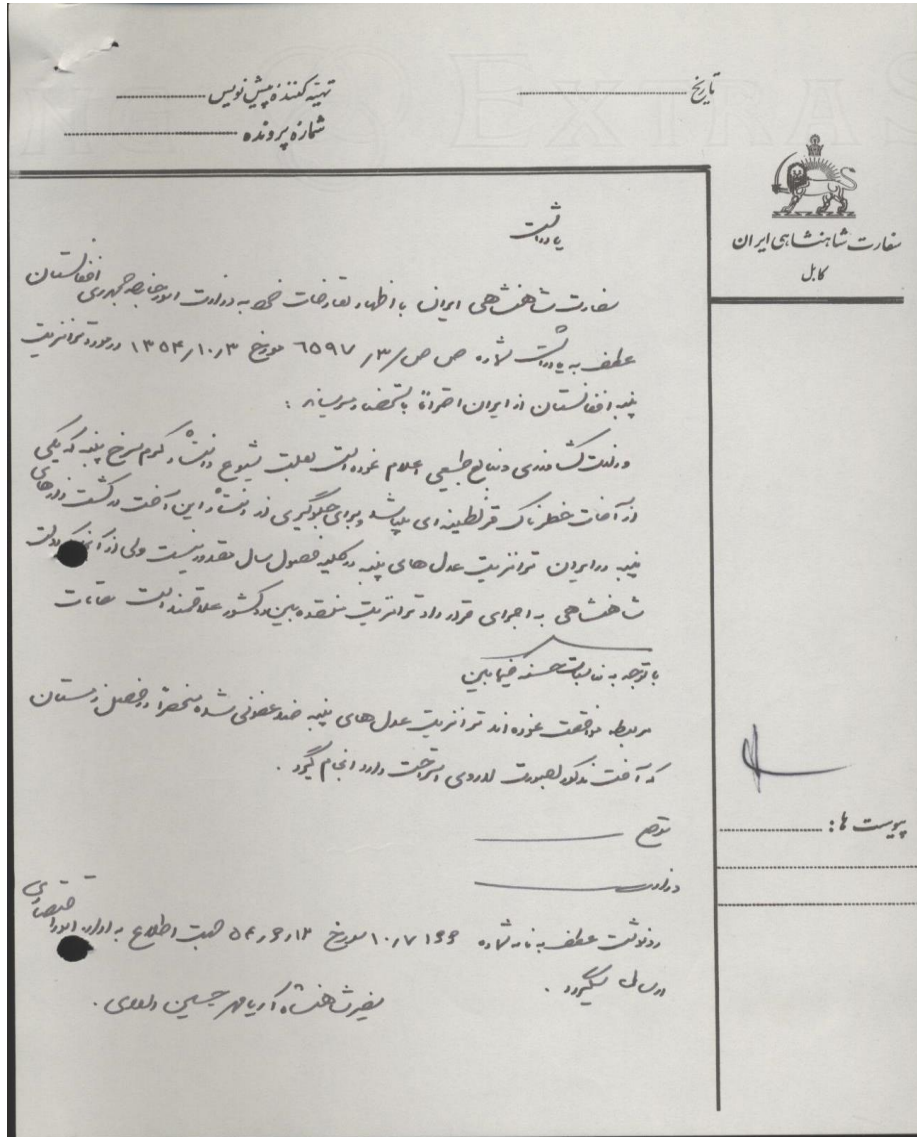 تاریخ
تهیه کننده پیش نویس
شماره پرونده
سفارت شاهنشاهی ایران
کابل
یادداشت
سفارت شاهنشاهی ایران با اظهار تعارفات خود به وزارت امور خارجه جمهوری افغانستان
عطف به یادداشت شماره ص ص/۳/ ٦٥٩٧ مورخ ۱۳۵۴/۱۰/۳ در مورد ترانزیت
پنبه افغانستان از ایران احتراماً باستحضار میرساند :
وزارت کشاورزی و منابع طبیعی اعلام نموده است بعلت شیوع و انتشار کرم سرخ پنبه که یکی
از آفات خطرناک قرنطینه ای میباشد و برای جلوگیری از انتشار این آفت در کشت زارهای
پنبه در ایران ترانزیت عدل های پنبه در کلیه فصول سال مقدور نیست ولی از آنجا که دولت
شاهنشاهی به اجرای قرارداد ترانزیت منعقده بین دو کشور علاقمند است مقامات
با توجه به مناسبات حسنه فیمابین
مربوطه موافقت نموده اند ترانزیت عدل های پنبه ضد عفونی شده منحصراً در فصل زمستان
که آفت مذکور بصورت لارو در استراحت دارد انجام گیرد .
موقع
وزارت
رونوشت عطف به نامه شماره مورخ جهت اطلاع به اداره امور اقتصادی
ارسال میگردد .
سفیر شاهنشاه آریامهر حسین داودی .
پیوست ها :